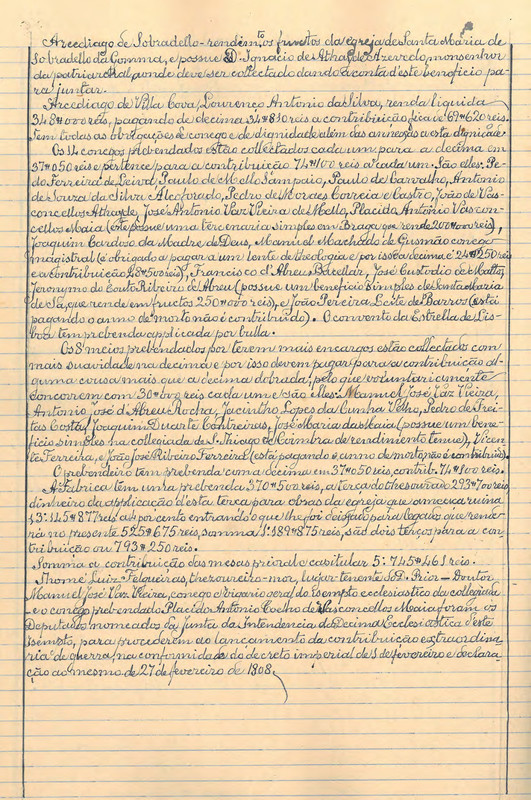 Arcediago de Sobradello - rendim.tos, fructos da egreja de Santa Maria de
Sobradello da Gomma, e possue D. Ignacio de Athayde Azevedo monsenhor
da patriarchal, aonde deve ser collectado dando a conta d'este beneficio pa-
ra juntar.
Arcediago de Villa Cova, Lourenço Antonio da Silva, renda liquida
348#000 reis, pagando de decima 34#810 reis a contribuição fica de 69#620 reis.
Tem todas as obrigações de conego e de dignidade além das annexas a esta dignidade.
Os 14 conegos prebendados estão collectados cada um para a decima em
37#050 reis e pertence para a contribuição 74#100 reis a cada um. São elles: Pe-
dro Ferreira de Leiva, Paulo de Mello Sampaio, Paulo de Carvalho, Antonio
de Souza da Silva Alcoforado, Pedro de Moraes Correia e Castro, João de Vas-
concellos Athayde, José Antonio Vaz Vieira de Mello, Placido Antonio Vascon-
cellos Maia (este possue uma tercenaria simples em Braga que rende 200#000 reis),
Joaquim Cardoso da Madre de Deus, Manuel Machado de Gusmão conego
magistral (é obrigado a pagar a um lente de theologia e por isso a decima é 24#250 reis
e a contribuição 48#500 reis), Francisco d'Abreu Bacellar, José Custodio de Mattos,
Jeronymo do Couto Ribeiro de Abreu (possue um beneficio simples de Santa Maria
de Sá, que rende em fructos 250#000 reis), e João Pereira Leite de Barros (está
pagando o anno de morto não é contribuido). O convento da Estrella de Lis-
boa tem prebenda applicada por bulla.
Os 8 meios prebendados por terem mais encargos estão collectados com
mais suavidade na decima e por isso devem pagar para a contribuição al-
guma cousa mais que a decima dobrada; pelo que voluntariamente
concorrem com 30#000 reis cada um e são elles: Manuel José Vaz Vieira,
Antonio José d'Abreu Rocha, Jacintho Lopes da Cunha Velho, Pedro de Frei-
tas Costa, Joaquim Duarte Contreiras, José Maria da Maia (possue um bene-
ficio simples na collegiada de S. Thiago de Coimbra de rendimento tenue), Vicen-
te Ferreira, e João José Ribeiro Ferreira (está pagando o anno de morto, não é contribuido).
O prebendeiro tem prebenda com a decima em 37#050 reis, contrib. 74#100 reis.
A Fabrica tem uma prebenda 370#500 reis, a terça do thesourado 293#700 reis,
dinheiro da applicação d'esta terça para obras da egreja que ameaça ruina
13:145#877 reis a 4 por cento entrando o que lhe foi deixado para legados que rende-
rá no presente 525#675 reis, somma 1:189#875 reis, são dois terços para a con-
tribuição ou 793#250 reis.
Somma a contribuição das mesas prioral e capitular 5:745#461 reis.
Thomé Luiz Felgueiras, thesoureiro-mor, lugar tenente do D. Prior - Doutor
Manuel José Vaz Vieira, conego e vigario geral do isempto ecclesiastico da collegiada
- e o conego prebendado Placido Antonio Coelho de Vasconcellos Maia foram os
Deputados nomeados da Junta da Intendencia da Decima Ecclesiastica d'este
isempto, para procederem ao lançamento da contribuição extraordina-
ria de guerra, na conformidade do decreto imperial de 1 de fevereiro e declara-
ção ao mesmo de 27 de fevereiro de 1808.